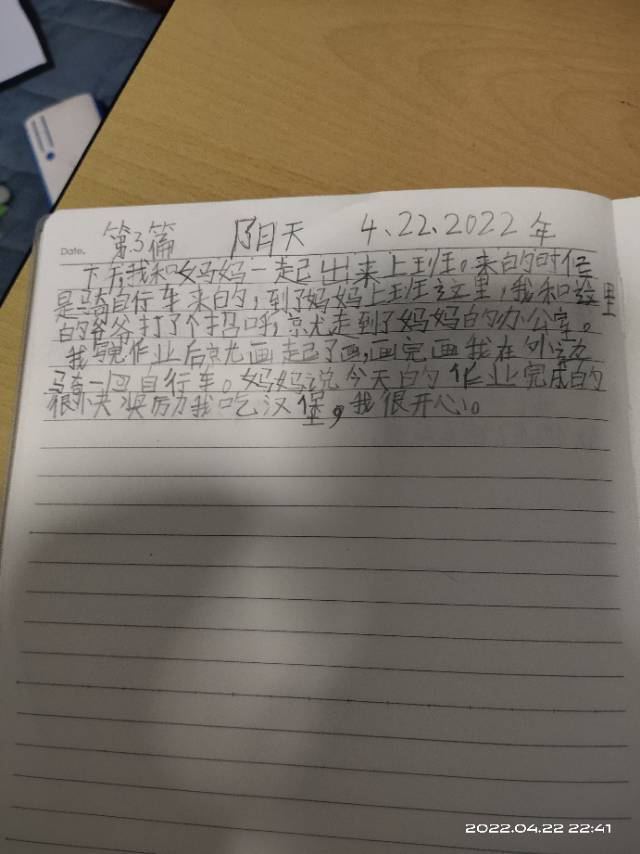 Date. 第3篇 阴天 4、22、2022年
下午,我和妈妈一起出来上班。来的时候
是骑自行车来的,到了妈妈上班这里,我和这里
的爷爷打了个招呼,就走到了妈妈的办公室。
我写完作业后就画起了画,画完画我在外边
骑一回自行车。妈妈说今天的作业完成的
很快奖励我吃汉堡,我很开心。
2022.04.22 22:41